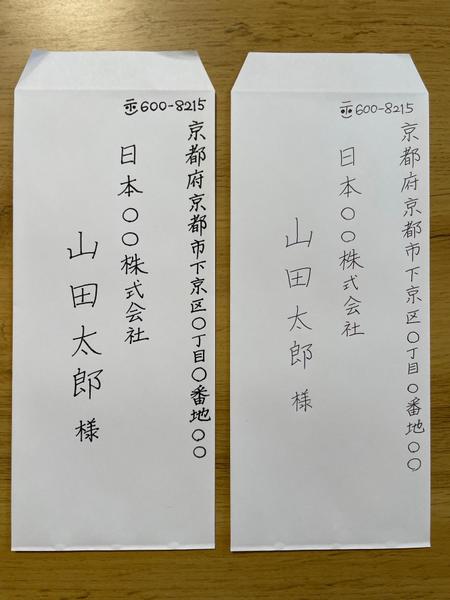 〠600-8215
京都府京都市下京区〇丁目〇番地〇〇
日本〇〇株式会社
山田太郎様
〠600-8215
京都府京都市下京区〇丁目〇番地〇〇
日本〇〇株式会社
山田太郎様